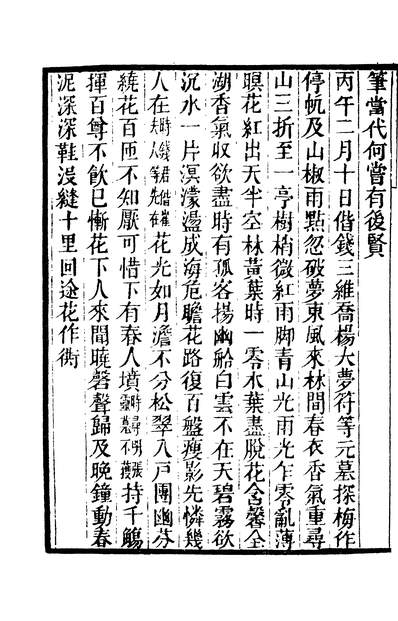 筆當代何嘗有後賢
丙午二月十日偕錢三維喬楊大夢符等元墓探梅作
停帆及山椒雨點忽破夢東風來林間春衣香氣重尋
山三折至一亭樹梢微紅雨脚青山光雨光乍零亂薄
暝花紅出天半空林黃葉時一零水葉盡脫花含馨全
湖香氣收欲盡時有孤客揚幽舲白雲不在天碧霧欲
沉水一片溟濛盪成海危瞻花路復百盤瘦影先憐幾
人在時錢君偕催夫人先在花光如月澹不分松翠入戶團幽芬
繞花百匝不知厭可惜下有春人墳時尋張靈墓不獲持千觴
揮百尊不飲已慚花下人來聞曉磬聲歸及晚鐘動春
泥深深鞋没縫十里回途花作衖